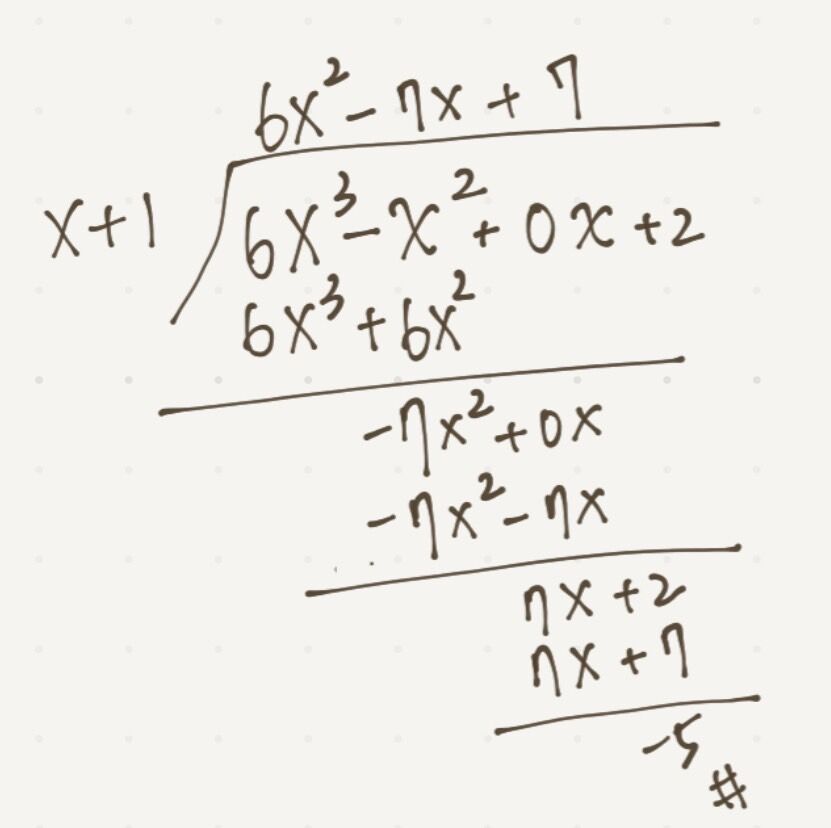 6x² - 7x + 7
x+1 6x³ - x² + 0x + 2
6x³ + 6x²
-7x² + 0x
-7x² - 7x
7x + 2
7x + 7
-5 #